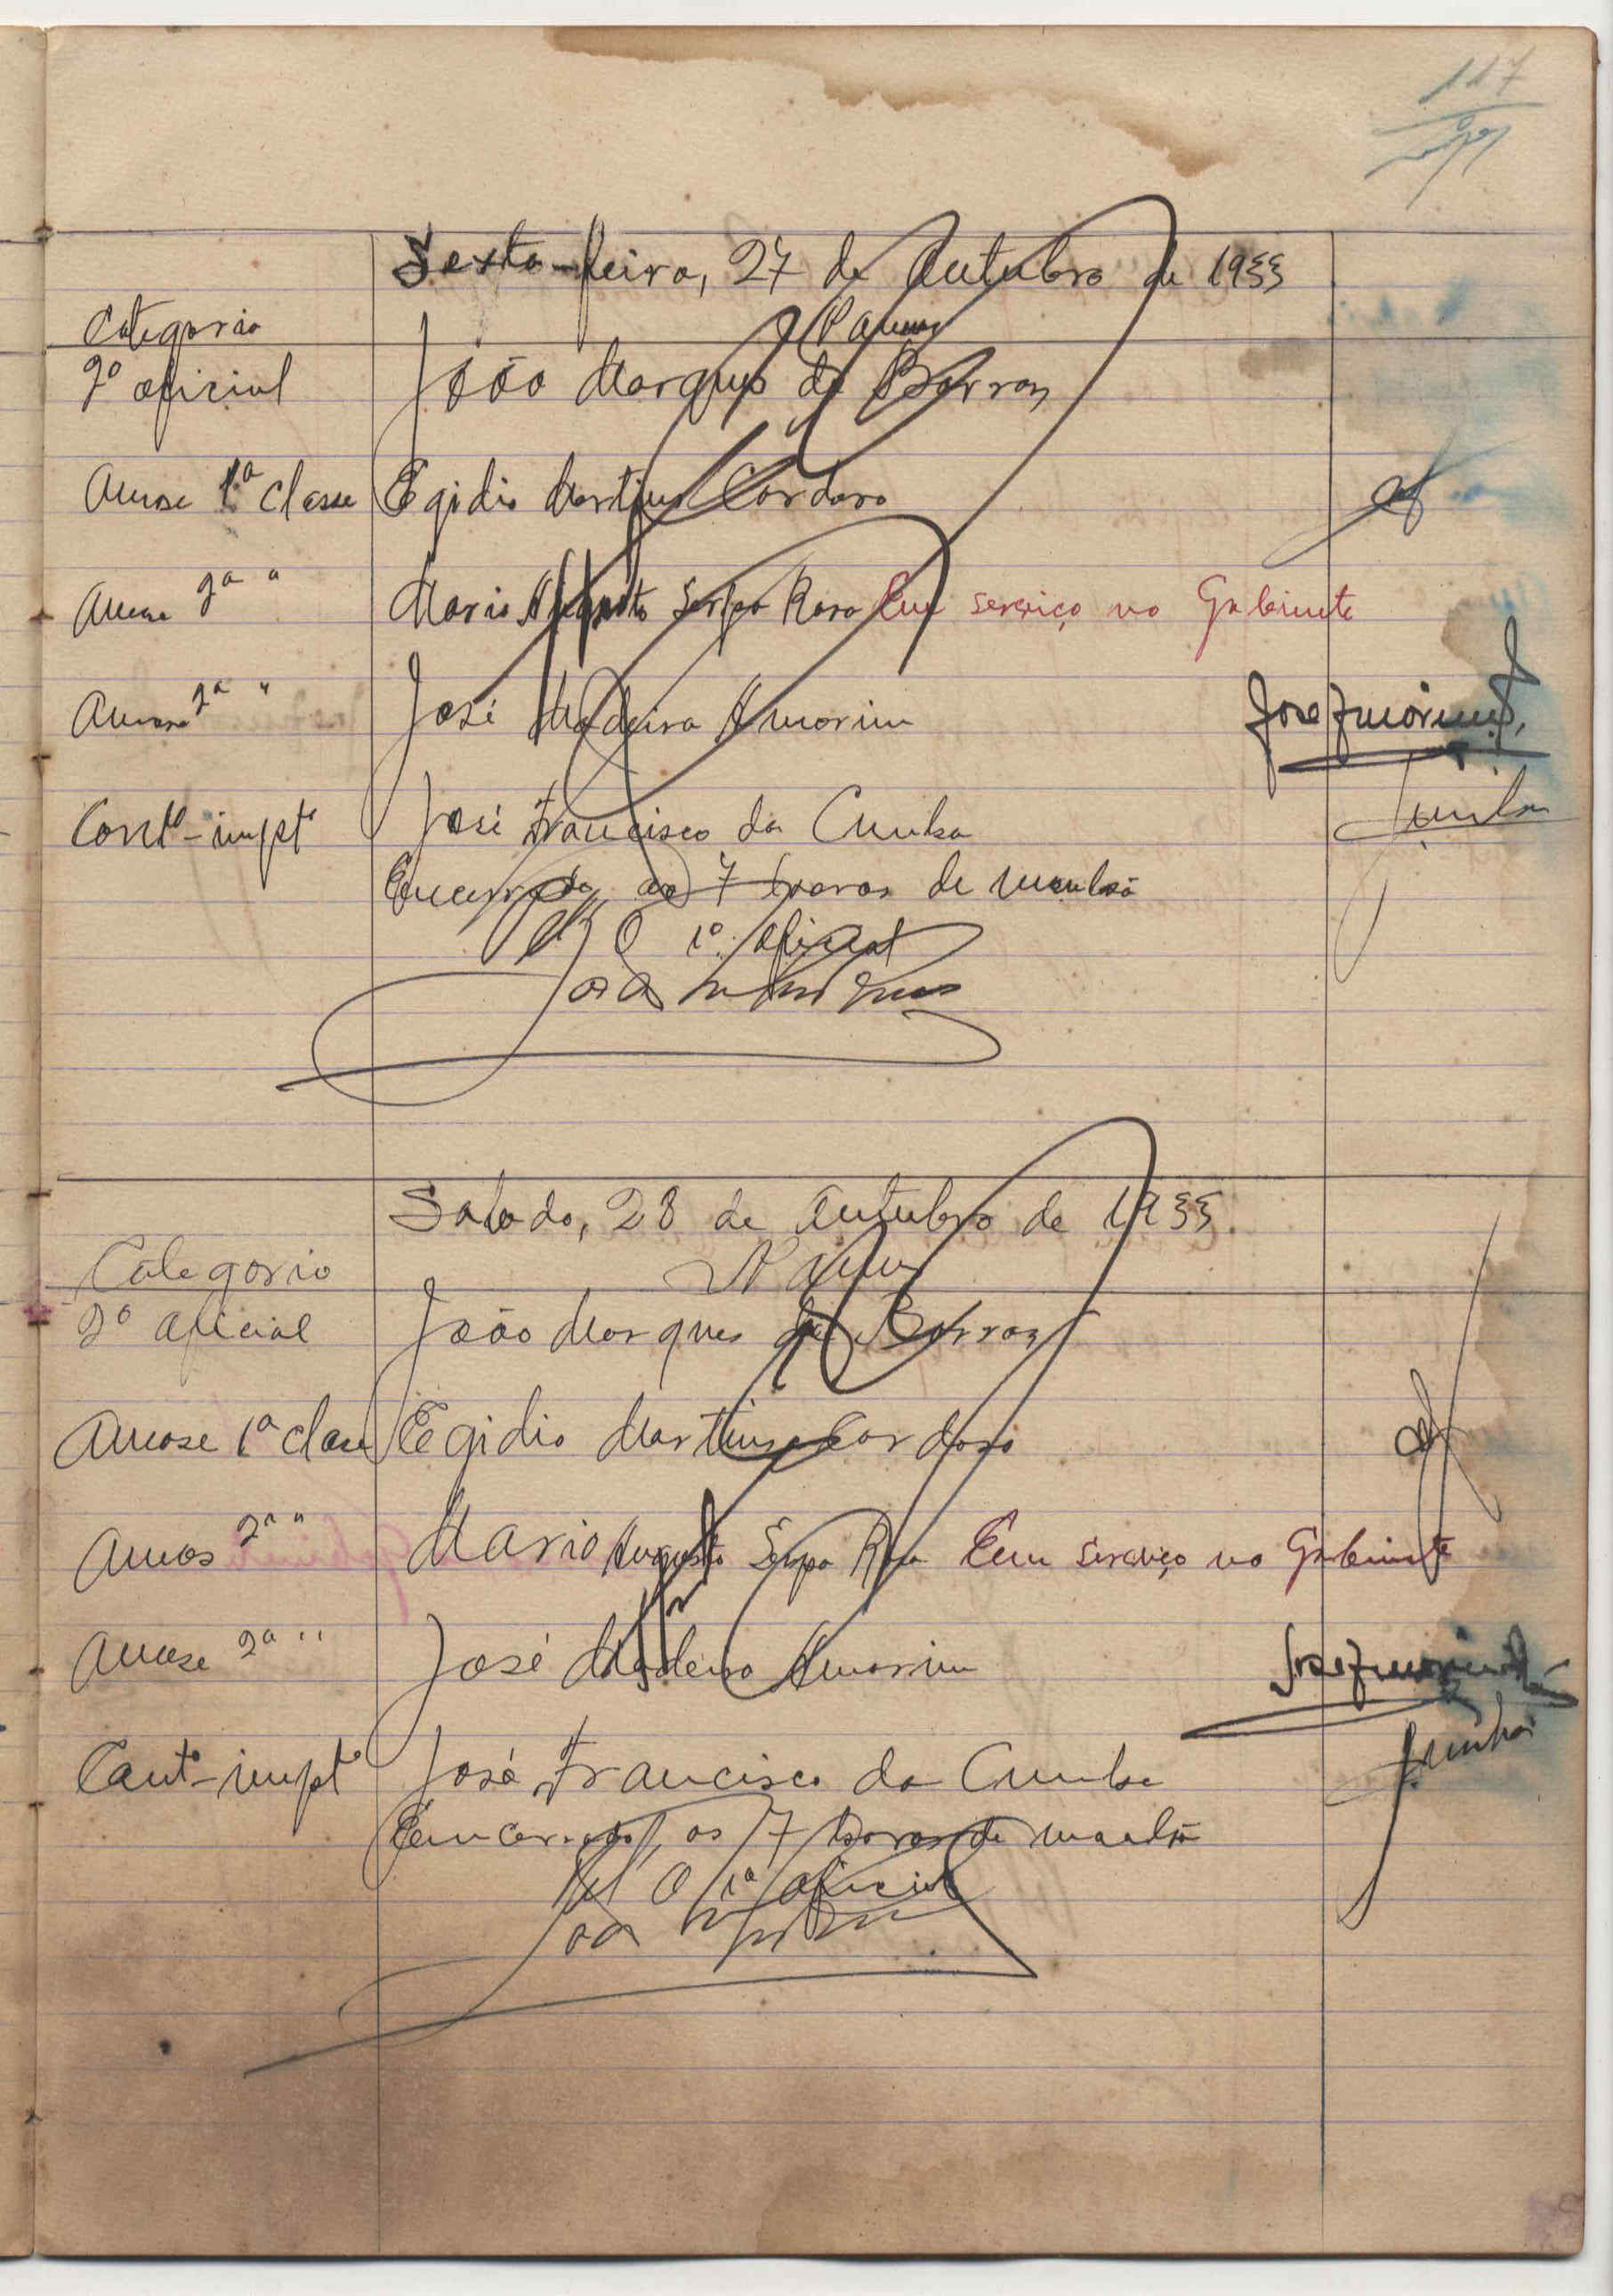 117
Sexta-feira, 27 de Outubro de 1933
Categoria Nomes
2º oficial João Marques de Barros
Amse 1.ª classe Egidio Martins Cardoso
Amse 2ª " Mario Augusto Serpa Rosa Em serviço no Gabinete
Amse 2ª " José Madeira Amorim José Amorim
Contº-impt° José Francisco da Cunha Cunha
Encerrado, as 7 horas de manhã
O 1º oficial
Sabado, 28 de Outubro de 1933.
Categoria Nomes
2º Oficial João Marques de Barros
Amose 1ª classe Egidio Martins Cardoso
Amos 2ª " Mario Augusto Serpa Rosa Em serviço no Gabinete
Amose 2ª " José Madeira Amorim José Amorim
Cont°-impt° José Francisco da Cunha Cunha
Encerrado, as 7 horas de manhã
O 1º oficial